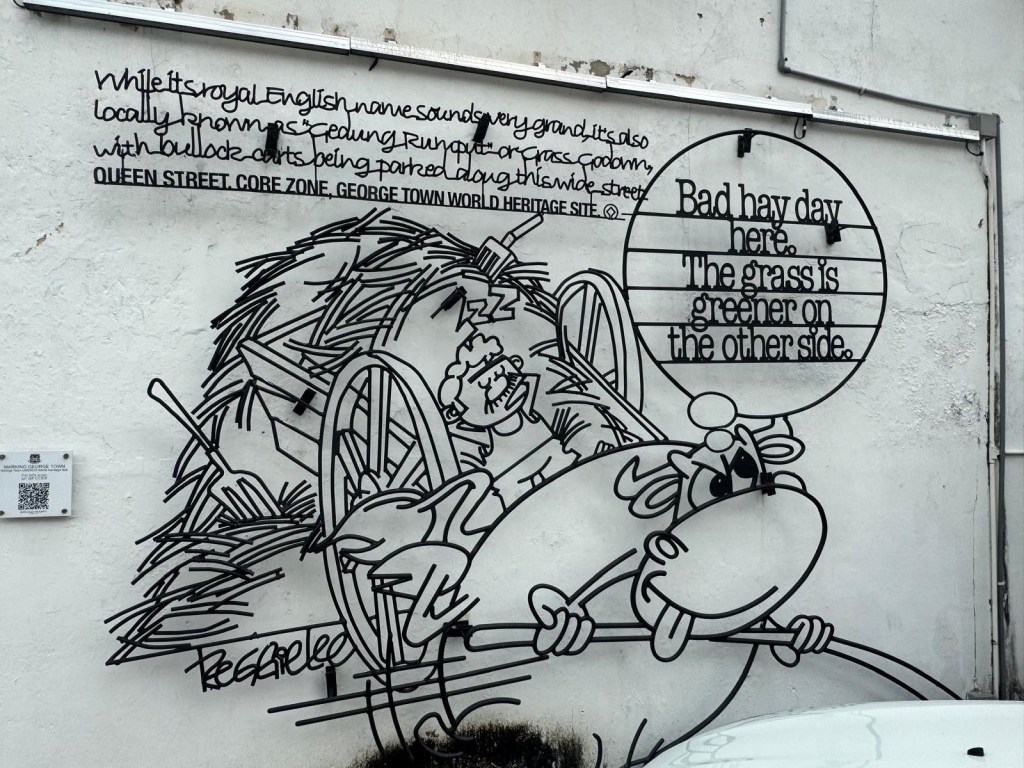 While its royal English name sounds very grand, it's also
locally known as "Gedung Rumput" or Grass Godown,
with bullock carts being parked along this wide street.
QUEEN STREET, CORE ZONE, GEORGE TOWN WORLD HERITAGE SITE.
Bad hay day
here.
The grass is
greener on
the other side.
ZZZ
MARKING GEORGE TOWN
Reggie Lee